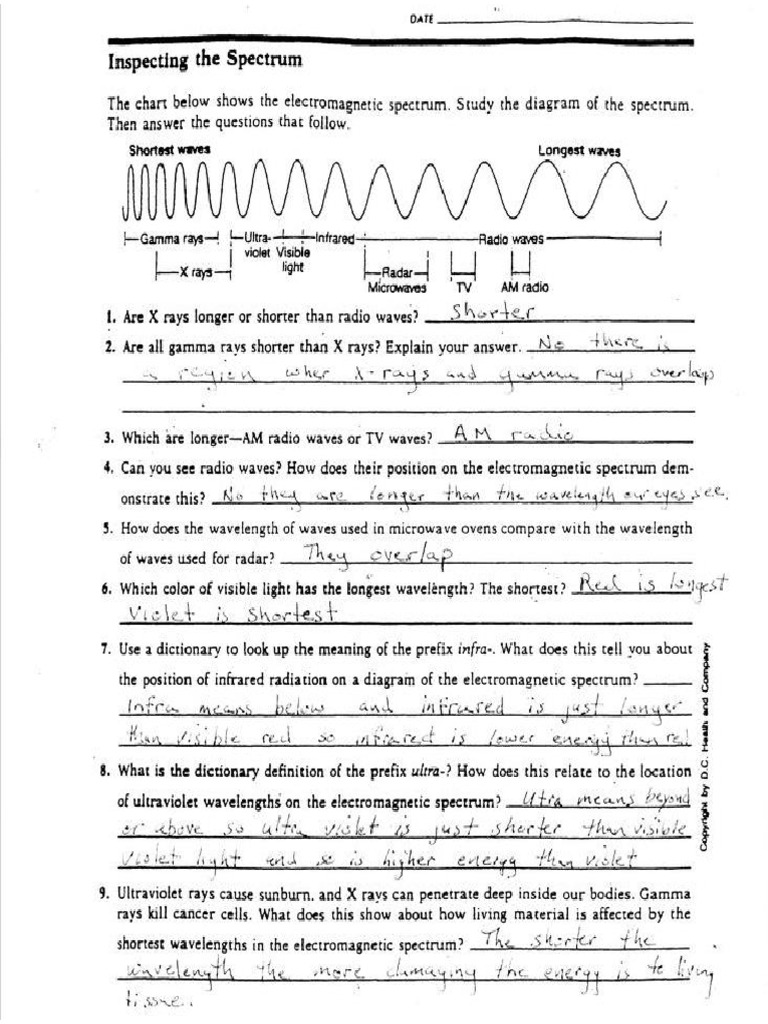 DATE
Inspecting the Spectrum
The chart below shows the electromagnetic spectrum. Study the diagram of the spectrum.
Then answer the questions that follow.
Shortest waves Longest waves
Gamma rays Ultra- Infrared Radio waves
violet Visible
X rays light Radar
Microwaves TV AM radio
1. Are X rays longer or shorter than radio waves? Shorter
2. Are all gamma rays shorter than X rays? Explain your answer. No there is
a region wher x-rays and gamma rays overlap
3. Which are longer—AM radio waves or TV waves? AM radio
4. Can you see radio waves? How does their position on the electromagnetic spectrum dem-
onstrate this? No they are longer than the wavelength our eyes see.
5. How does the wavelength of waves used in microwave ovens compare with the wavelength
of waves used for radar? They overlap
6. Which color of visible light has the longest wavelength? The shortest? Red is longest
Violet is shortest
7. Use a dictionary to look up the meaning of the prefix infra-. What does this tell you about
the position of infrared radiation on a diagram of the electromagnetic spectrum?
Infra means below and infrared is just longer
than visible red so infrared is lower energy than red
8. What is the dictionary definition of the prefix ultra-? How does this relate to the location
of ultraviolet wavelengths on the electromagnetic spectrum? Utra means beyond
or above so ultra violet is just shorter than visible
violet light and so is higher energy than violet
9. Ultraviolet rays cause sunburn, and X rays can penetrate deep inside our bodies. Gamma
rays kill cancer cells. What does this show about how living material is affected by the
shortest wavelengths in the electromagnetic spectrum? The shorter the
wavelength the more damaging the energy is to living
tissue.
Copyright by D.C. Heath and Company